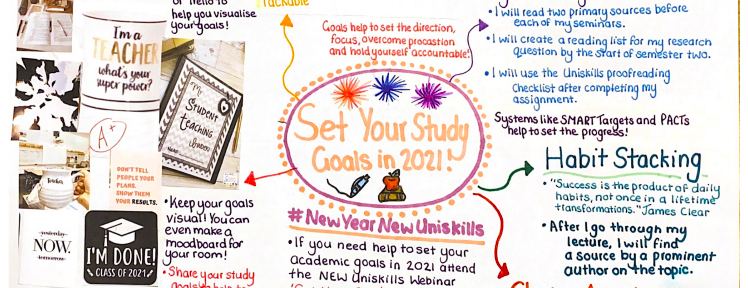 or Trello to
help you visualise
your goals!
Trackable
Goals help to set the direction,
focus, overcome procastion
and hold yourself accountable!
Set Your Study
Goals in 2021!
#New Year New Uniskills
• If you need help to set your
academic goals in 2021 attend
the NEW Uniskills Webinar
• I will read two primary sources before
each of my seminars.
• I will create a reading list for my research
question by the start of semester two.
• I will use the Uniskills proofreading
Checklist after completing my
assignment.
Systems like SMART Targets and PACTs
help to set the progress!
Habit Stacking
• "Success is the product of daily
habits, not once in a lifetime
transformations." James Clear
• After I go through my
lecture, I will find
a source by a prominent
author on the topic.
I'm a
TEACHER
what's your
super power?
My
STUDENT
teaching
A+
DON'T TELL
PEOPLE YOUR
PLANS.
SHOW THEM
YOUR RESULTS.
Teacher
-yesterday-
NOW.
-tomorrow-
I'M DONE!
CLASS OF 2021
• Keep your goals
visual! You can
even make a
moodboard for
your room!
• Share your study
goals help to